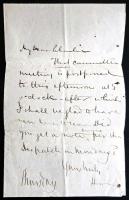 My dear
That committee
meeting is postponed
to this afternoon at 5
o'clock after which
I shall be glad to have
you
get a note for the
Despatch on Monday?
Yours truly
Thursday